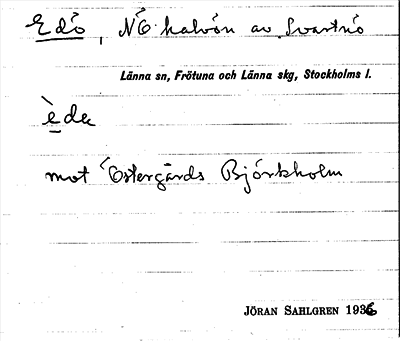 Edö, NÖ halvön av Svartnö
Länna sn, Frötuna och Länna skg, Stockholms l.
è̱da
mot Östergårds Björkholm
JÖRAN SAHLGREN 1936